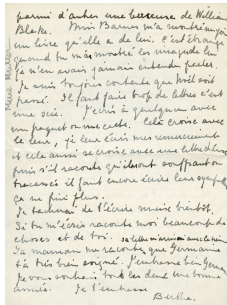 parmi d'autres une berceuse de William
Blake. Miss Barns m'a montré
un livre qu'elle a de lui. C'est étrange
quand tu m'as montré les images de lui
je n'en avais jamais entendu parler.
Je suis toujours contente que Noël soit
passé. Il faut faire trop de lettres c'est
une scie. J'écris à quelqu'un avec
un paquet ou une carte. Cela croise avec
le leur, je leur écris mes remerciements
et cela aussi se croise avec une lettre d'eux
puis s'il raconte qu'ils sont souffrants ou
tracassés il faut encore écrire leur
ça ne finit plus.
Je tâcherai de t'écrire mieux bientôt.
Si tu m'écris raconte moi beaucoup de
choses et de toi.
ta maman me raconte que Germaine
t'a très bien soigné. J'embrasse bien Germaine
Je vous souhaite tous les deux une bonne
année. Je t'embrasse
Berthe.